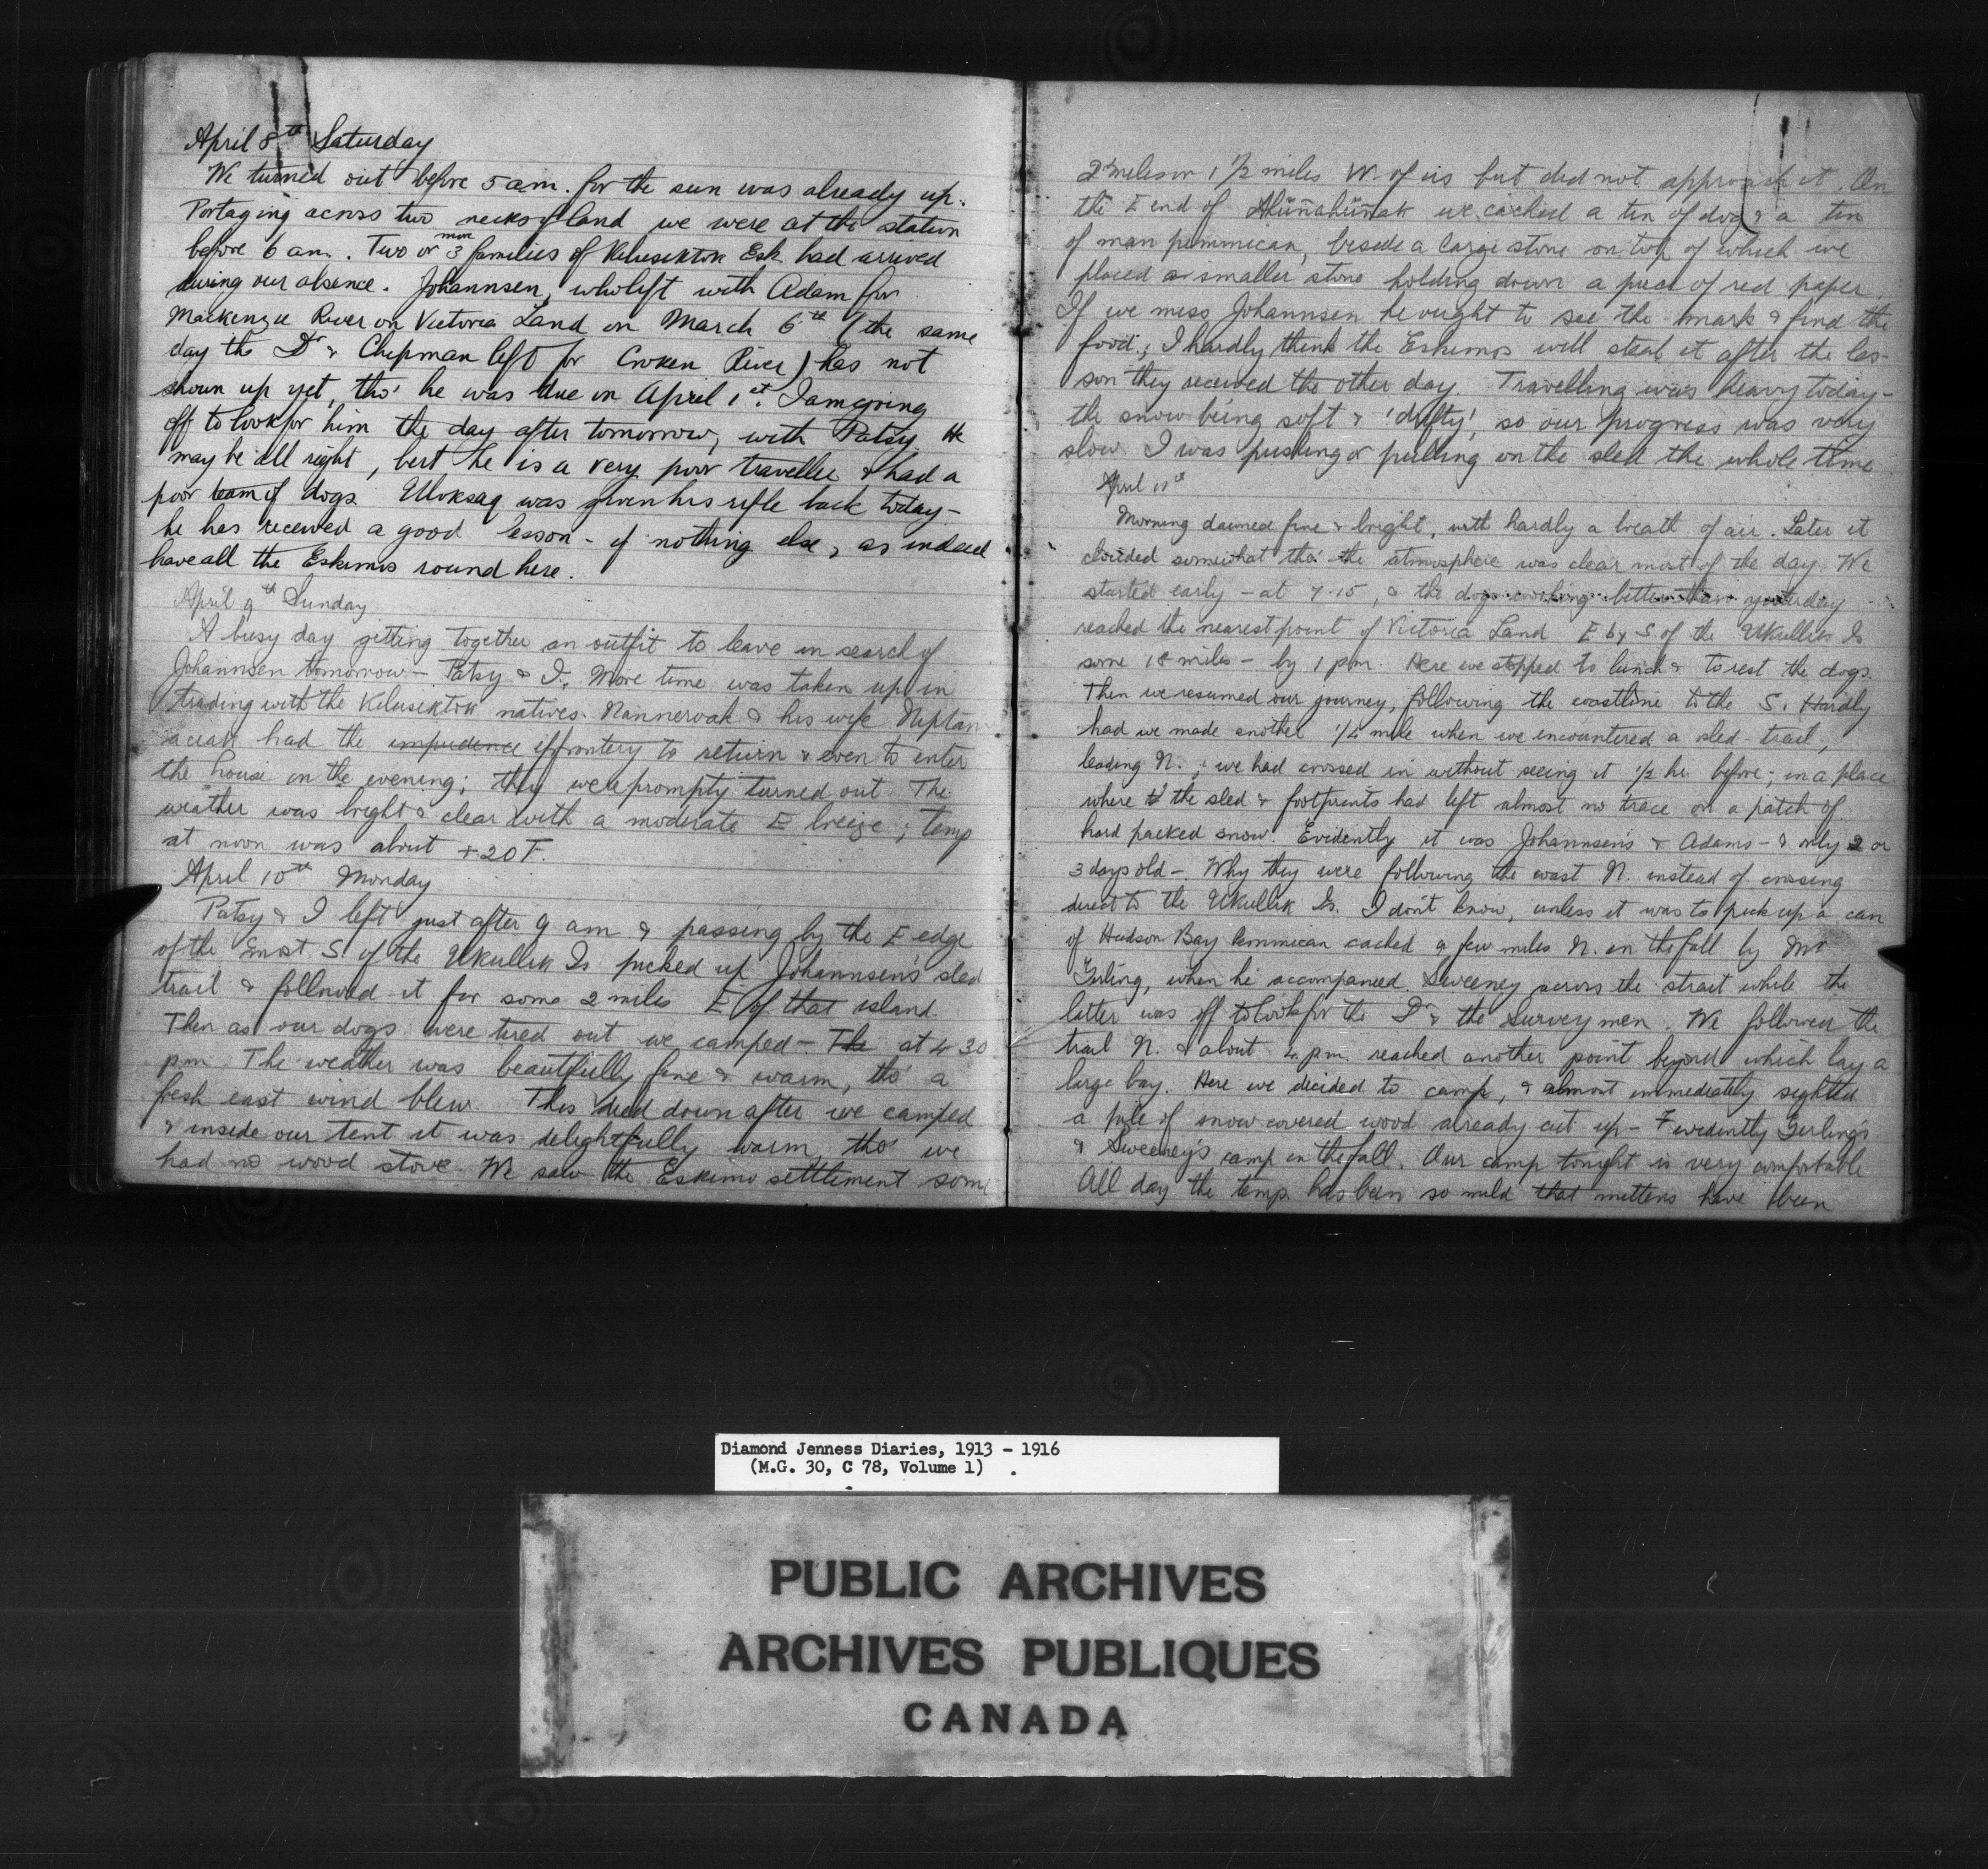 April 8th Saturday
We turned out before 5 am. for the sun was already up.
Portaging across two necks of land we were at the station
before 6 am. Two or 3 more families of Kilusiktok Esk. had arrived
during our absence. Johannsen, who left with Adam for
Mackenzie River on Victoria Land on March 6th (the same
day the Dr & Chipman left for Croker River) has not
shown up yet, tho' he was due on April 1st. I am going
off to look for him the day after tomorrow, with Patsy. He
may be all right, but he is a very poor traveller & had a
poor team of dogs. Uloksaq was given his rifle back today -
he has received a good lesson - if nothing else, as indeed
have all the Eskimos round here.
April 9th Sunday
A busy day getting together an outfit to leave in search of
Johannsen tomorrow - Patsy & I. More time was taken up in
trading with the Kilusiktok natives. Nanneroak & his wife Niptan
aciak had the impudence effrontery to return & even to enter
the house in the evening; they were promptly turned out. The
weather was bright & clear with a moderate E breeze; temp
at noon was about +20 F.
April 10th Monday
Patsy & I left just after 9 am & passing by the E edge
of the most S. of the Ukullik Is picked up Johannsen's sled
trail & followed it for some 2 miles E of that island.
Then as our dogs were tired out we camped - The at 4 30
pm. The weather was beautifully fine & warm, tho' a
fresh east wind blew. This died down after we camped
& inside our tent it was delightfully warm, tho' we
had no wood stove. We saw the Eskimo settlement some
2 miles or 1 1/2 miles W. of us but did not approach it. On
the E end of we cached a tin of dog & a tin
of man pemmican, beside a large stone on top of which we
placed a smaller stone holding down a piece of red paper.
If we miss Johannsen he ought to see the mark & find the
food; I hardly think the Eskimos will steal it after the les-
son they received the other day. Travelling was heavy today -
the snow being soft & 'drifty', so our progress was very
slow. I was pushing or pulling on the sled the whole time
April 11th
Morning dawned fine & bright, with hardly a breath of air. Later it
clouded somewhat tho' the atmosphere was clear most of the day. We
started early - at 7.15, & the dogs working better than yesterday
reached the nearest point of Victoria Land E by S of the Ukullik Is
some 18 miles - by 1 pm. Here we stopped to lunch & to rest the dogs.
Then we resumed our journey, following the coastline to the S. Hardly
had we made another 1/4 mile when we encountered a sled trail,
leading N.; we had crossed in without seeing it 1/2 hr before, in a place
where the sled & footprints had left almost no trace on a patch of
hard packed snow. Evidently it was Johannsen's & Adams - & only 2 or
3 days old -. Why they were following the coast N. instead of crossing
direct to the Ukullik Is. I don't know, unless it was to pick up a can
of Hudson Bay Pemmican cached a few miles N. in the fall by Mr
Girling, when he accompanied Sweeney across the strait while the
latter was off to look for the Dr & the Survey men. We followed the
trail N. & about 4 p.m. reached another point beyond which lay a
large bay. Here we decided to camp, & almost immediately sighted
a pile of snow covered wood already cut up - Evidently Girling's
& Sweeney's camp in the fall. Our camp tonight is very comfortable
All day the temp. has been so mild that mittens have been
Diamond Jenness Diaries, 1913 - 1916
(M.G. 30, C 78, Volume 1)
PUBLIC ARCHIVES
ARCHIVES PUBLIQUES
CANADA